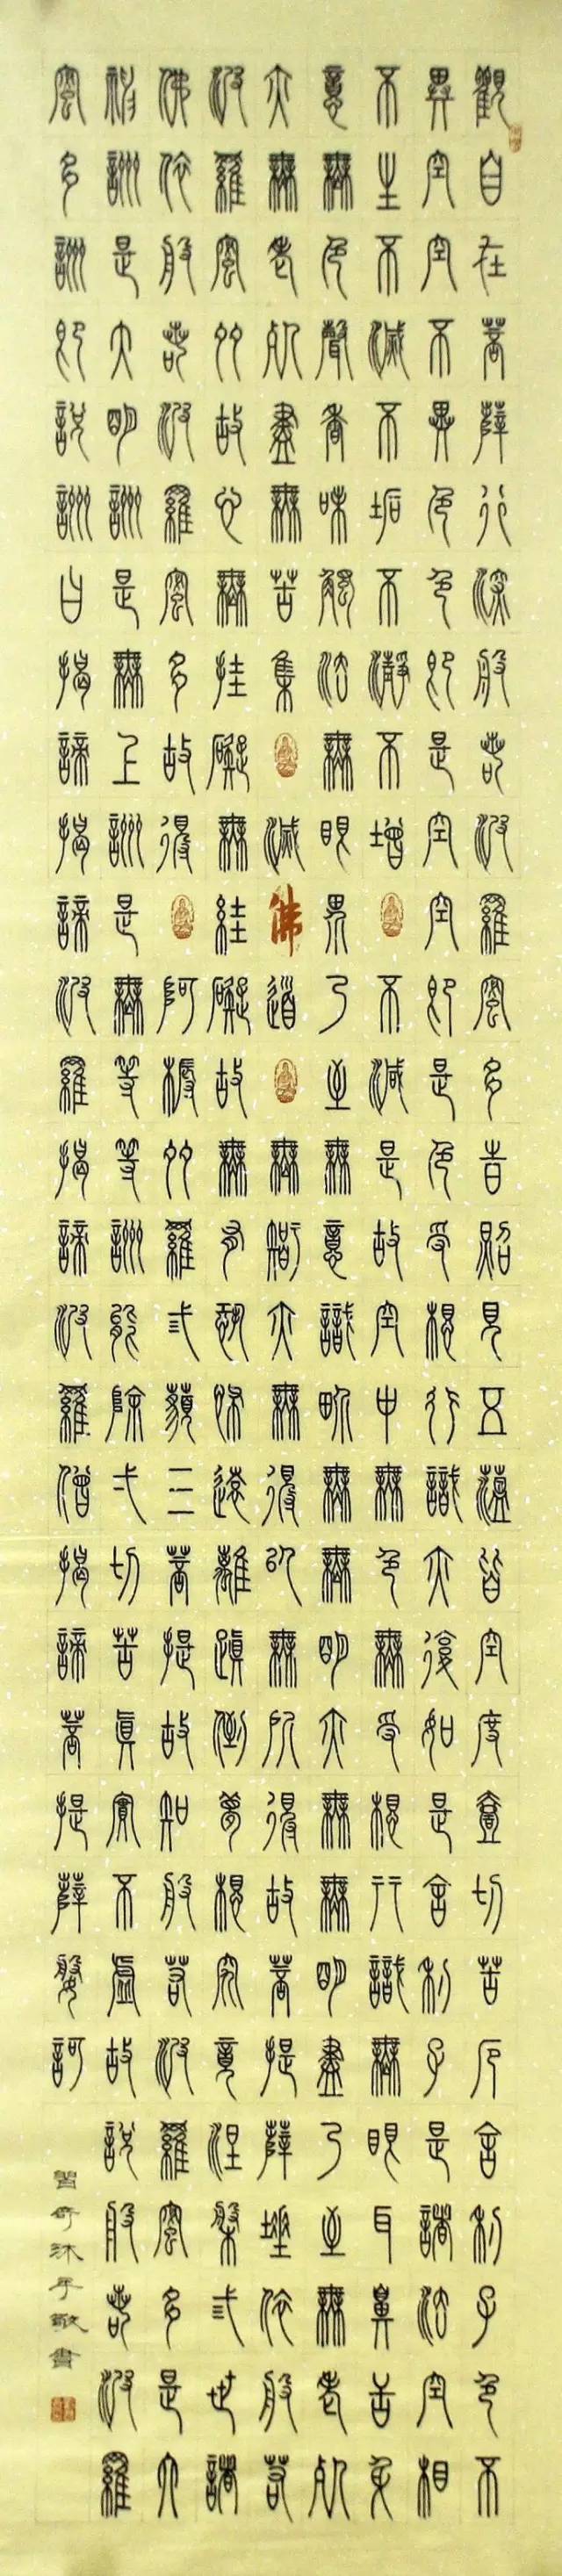 觀自在菩薩行深般若波羅蜜多時照見五蘊皆空度壹切苦厄舍利子色不
異空空不異色色即是空空即是色受想行識亦復如是舍利子是諸法空相
不生不滅不垢不瀞不增不減是故空中無色無受想行識無眼耳鼻舌身
意無色聲香味觸法無眼界乃至無意識界無無明亦無無明盡乃至無老死
亦無老死盡無苦集滅佛道無智亦無得以無所得故菩提薩埵依般若
波羅蜜多故心無挂礙無絓礙故無有恐怖遠離顛倒夢想究竟涅槃弎世諸
佛依般若波羅蜜多故得阿耨多羅弎藐三菩提故知般若波羅蜜多是大
神詶是大明詶是無上詶是無等等詶能除弌切苦真實不虛故說般若波羅
蜜多詶即說詶曰揭諦揭諦波羅揭諦波羅僧揭諦菩提薩婆訶
習奇沐手敬書